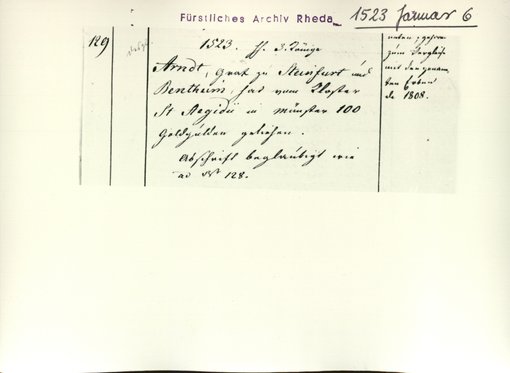 Fürstliches Archiv Rheda
1523 Januar 6
129
1523. ff. 3. Könige
Arndt, Graf zu Steinfurt und
Bentheim, hat vom Kloster
St Aegidii in Münster 100
Goldgülden geliehen.
Abschrift beglaubigt wie
ad No 128.
zum Vergleiche
mit den genann
ten Erben
de 1808.